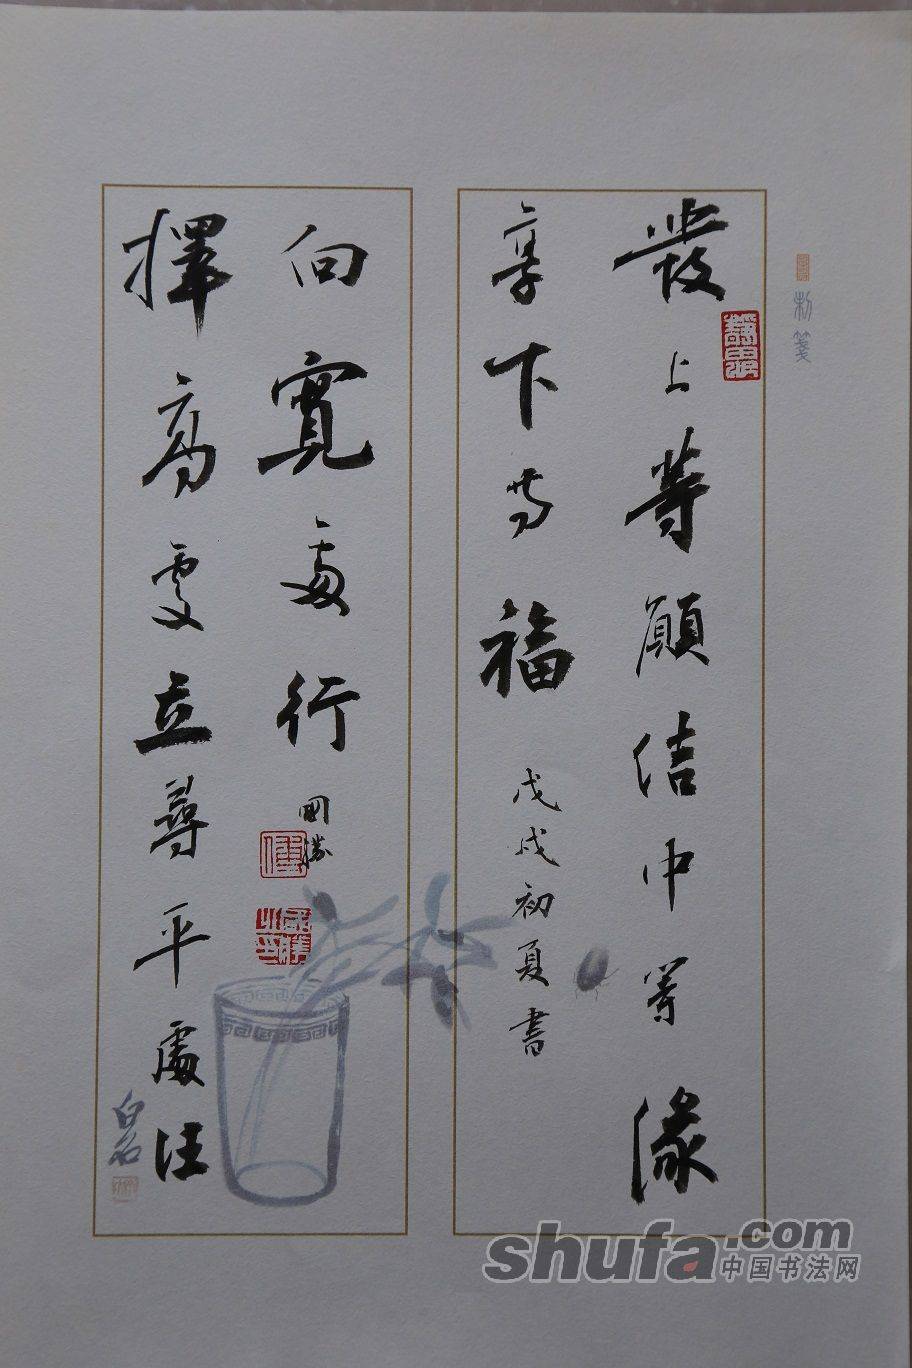 發上等願結中等緣
享下等福
戊戌初夏書
擇高處立尋平處住
向寬處行
國勝
國勝之印
白石
shufa.com
中国书法网